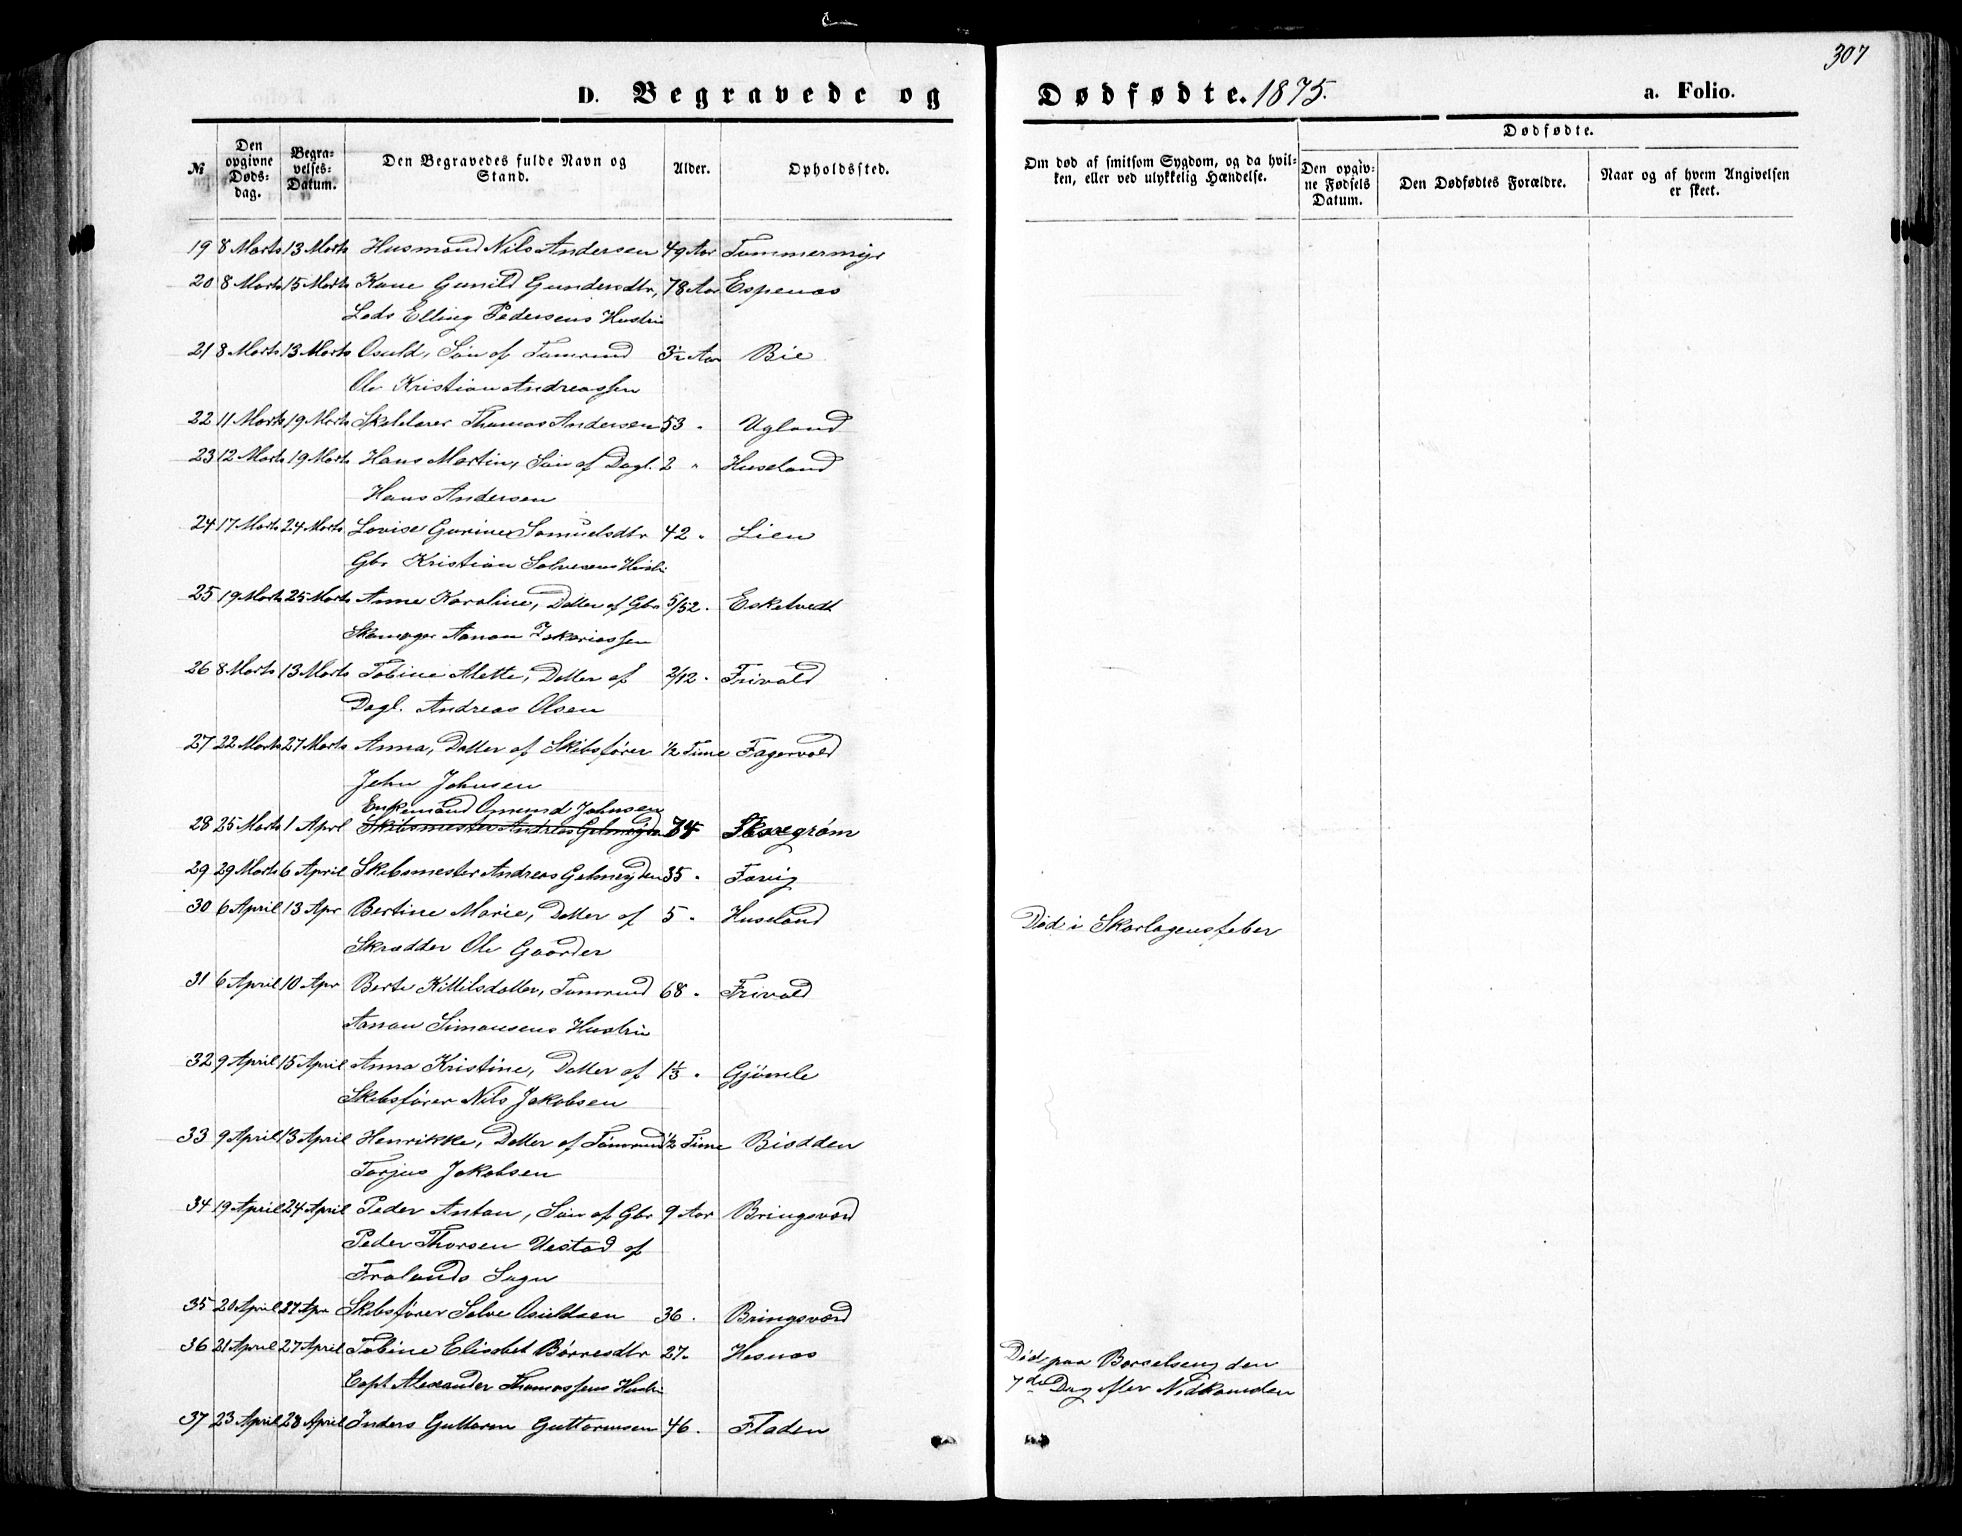 307
D. Begravede og Dødfødte. 1875. a. Folio.
№ Den opgivne Døds-dag. Begra-velses-Datum. Den Begravedes fulde Navn og Stand. Alder. Opholdssted.
Om død af smitsom Sygdom, og da hvil-ken, eller ved ulykkelig Hændelse. Dødfødte. Den opgiv-ne Fødsels Datum. Den Dødfødtes Forældre. Naar og af hvem Angivelsen er skeet.
19 8 Marts 13 Marts Husmand Nils Andersen 49 Aar Tømmermyr
20 8 Marts 15 Marts Kone Gunild Gundersdtr, 78 Aar Espenæs
Lods Elling Pedersens Hustru
21 8 Marts 13 Marts Osuld, Søn af Tømrmd 3½ Aar Bie
Ole Kristian Andreassen
22 11 Marts 19 Marts Skolelærer Thomas Andersen 53 " Ugland
23 12 Marts 19 Marts Hans Martin, Søn af Dagl. 2 " Huseland
Hans Andersen
24 17 Marts 24 Marts Lovise Gurine Samuelsdtr 42 " Lien
Gbr Kristian Salvesens Hustru
25 19 Marts 25 Marts Anne Karoline, Datter af Gbr 5/52 " Eskelvedt
Skomager Aanon Zakariassen
26 8 Marts 13 Marts Tobine Mette, Datter af 2/12 " Frivold
Dagl. Andreas Olsen
27 22 Marts 27 Marts Anna, Datter af Skibsfører ½ Time Fagervold
John Johnsen
Enkemand Omund Johnsen
28 25 Marts 1 Aprl Skibsmester Andreas Gelmeyden 74 Skaregrøm
29 29 Marts 6 April Skibsmester Andreas Gelmeyden 35 " Fævig
30 6 April 13 Apr Bertine Marie, Datter af 5 " Huseland Død i Skarlagensfeber
Skrædder Ole Gaarder
31 6 April 10 Apr Berte Kittilsdatter, Tømrmd 68 " Frivold
Aanon Simonsens Hustru
32 9 April 15 April Anna Kristine, Datter af 1⅓ " Gjømle
Skibsfører Nils Jakobsen
33 9 April 13 April Henrikke, Datter af Tømrmd ½ Time Biodden
Torjus Jakobsen
34 19 April 24 April Peder Anton, Søn af Gbr 9 Aar Bringsværd
Peder Thorsen Uestad af
Frolands Sogn
35 20 April 27 Apr Skibsfører Salve Osuldsen 36 " Bringsværd
36 21 April 27 April Tobine Elisabet Børresdtr 27 " Hesnæs Død paa Barselseng den
Capt Alexander Thomassens Hustru 7de Dag efter Nedkomsten
37 23 April 28 April Inders Guttorm Guttormsen 46 " Fladen